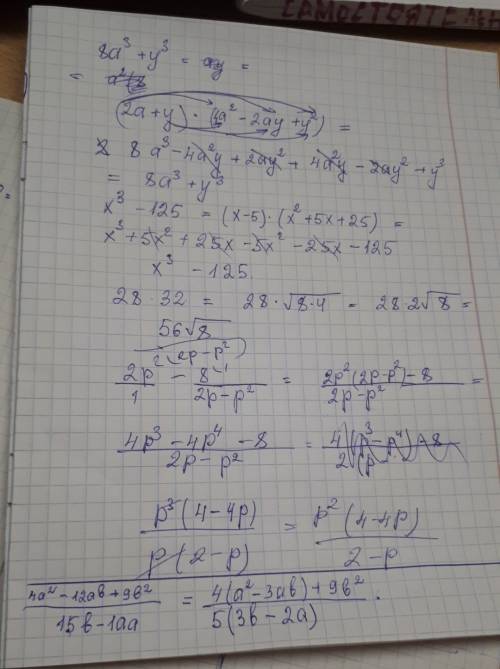 САМОСТОЯТЕ
8a³ + y³ = ay =
=
(2a+y) · (4a² - 2ay + y²) =
8a³ - 4a²y + 2ay² + 4a²y - 2ay² + y³
= 8a³ + y³
x³ - 125 = (x-5) · (x² + 5x + 25) =
x³ + 5x² + 25x - 5x² - 25x - 125
x³ - 125
28 · 32 = 28 · √8·4 = 28 · 2√8 =
56√8
2p²/1 (2p-p²) - 8/(2p-p²) \1 = (2p²(2p-p²)-8)/(2p-p²) =
(4p³ - 4p⁴ - 8)/(2p - p²) =
p³(4-4p)/p(2-p) = p²(4-4p)/(2-p)
(4a² - 12ab + 9b²)/(15b - 10a) = (4(a² - 3ab) + 9b²)/(5(3b - 2a)) .